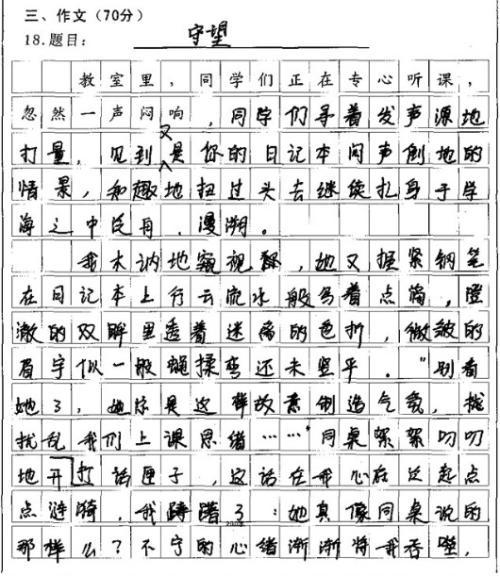 三、作文（70分）
18.题目：守望
教室里，同学们正在专心听课，
忽然一声闷响，同学们寻着发声源地
打量，见到又是你的日记本闷声倒地的
情景，知趣地扭过头去继续扎身于学
海之中泛舟、漫溯。
我木讷地窥视，她又握紧钢笔
在日记本上行云流水般写着点滴，澄
澈的双眸里透着迷离的色折，微皱的
眉宇似一般绳揉弯还未竖平。“别看
她了，她总是这样故意制造气氛，扰
扰乱我们上课思绪……”同桌絮絮叨叨
地开打话匣子，这话在我心在泛起点
点涟漪，我踌躇了：她真像同桌说的
那样么？不宁的心绪渐渐将我吞噬，